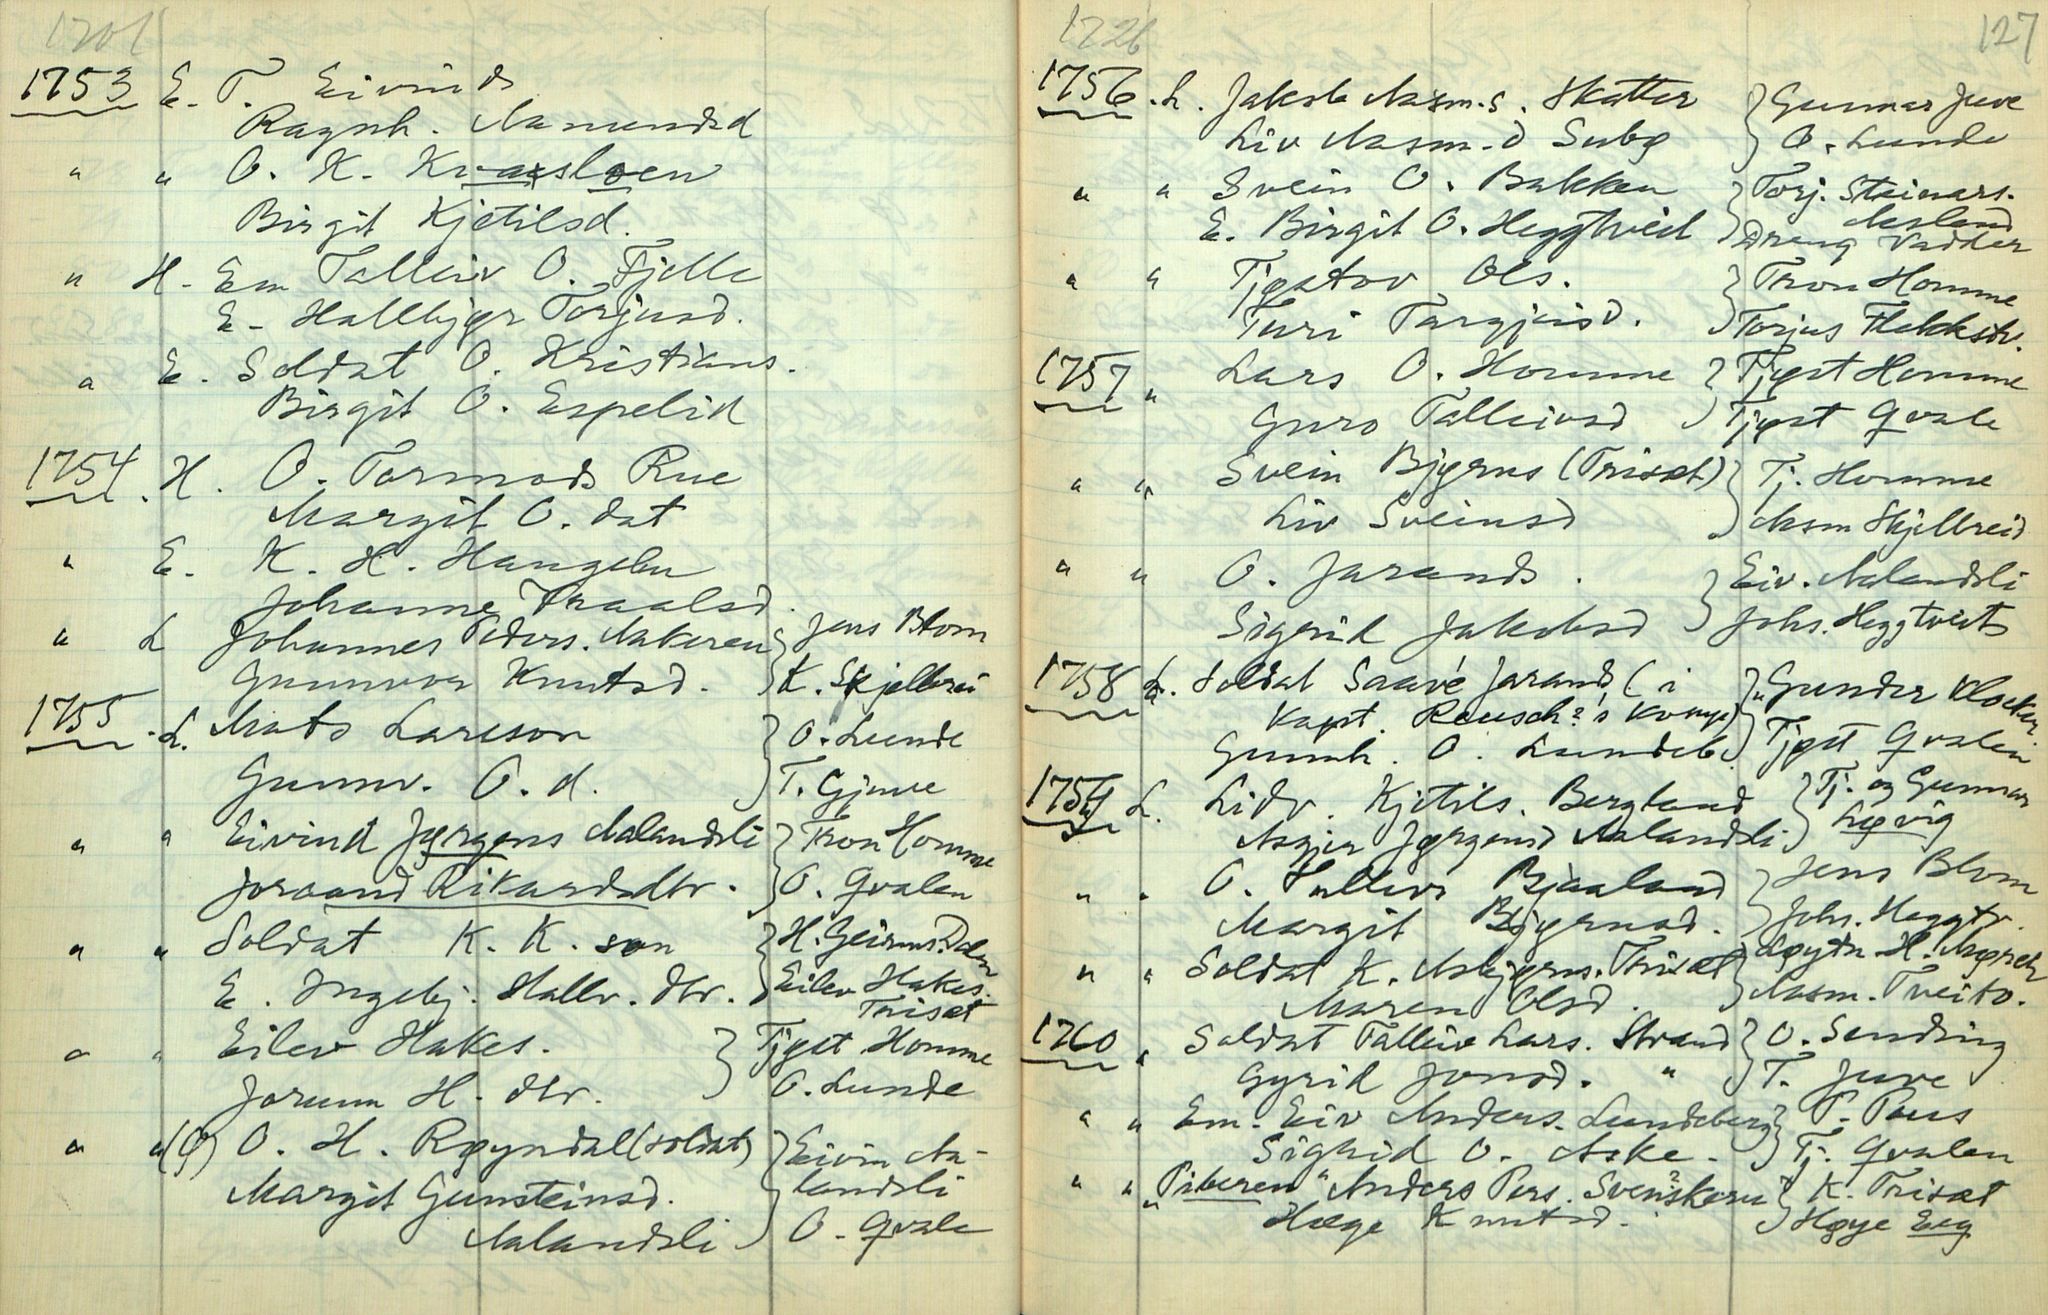 1753 E. T. Eivinds
Ragnh. Aamundsd
" " O. K. Kvaasloen
Birgit Kjetilsd.
" H. Em Talleiv O. Fjelle
E. Hallbjør Torjusd.
" E. Soldat O. Kristians.
Birgit O. Espelid
1754. H. O. Tormods Rue
Margit O. dat
" E. K. H. Haugebu
Johanne Traalsd.
" L Johannes Peders. Aakeren } Jens Blom
Gunnvor Knutsd. K. Skjelbrei
1755. L. Mats Larsson } O. Lunde
Gunnv. O. d. T. Gjuve
" " Eivind Jørgens Aalandsli } Tron Homme
Joraand Rikardsdtr. O. Qvalen
" " Soldat K. K. son } H. Geirms. Dalen
E. Ingebj. Hallv. dtr. Eilev Hakes.
Triset
" " Eilev Hakes. } Tjøst Homme
Jorunn H. dtr. O. Lunde
" "(G) O. H. Røyndal (soldat) } Eivin Aa-
Margit Gunsteinsd. landsli
Aalandsli O. Qvale
1726 127
1756. L. Jakob Aasm.s. Skatter } Gunnar Juve
Liv Aasm.d Subø O. Lunde
" " Svein O. Bakken } Torj. Steinars.
Aasland
E. Birgit O. Heggtveit Dreng Vadder
" " Tjøstov Ols. } Tron Homme
Turi Targjeisd. Torjus Flekkstv.
1757 " Lars O. Homme } Tjøst Homme
Guro Talleivsd Tjøst Qvale
" " Svein Bjørns (Triset) } Tj. Homme
Liv Sveinsd Aasm Skjelbreid
" " O. Jarands. } Eiv. Aalandsli
Sigrid Jakobsd Johs. Heggtveit
1758 L. Soldat Saave Jarands ( i } Gunder Klocker
Kapt. Reusch?'s komp) Tjøst Qvalen
Gunnh. O. Lundeb.
1759 L. Lidv. Kjetils. Bergland } Tj. og Gunnar
Løvig
Asgjer Jørgensd Aalandsli
" " O. Halleivs Bjaaland } Jens Blom
Margit Bjørnsd. Johs. Heggtv.
" " Soldat K. Asbjørns. Triset } Løytn. H.
Maren Olsd. Aasm. Tveito.
1760 " Soldat Talleiv Lars. Strand } O. Sendring
Gyrid Jonsd. " T. Juve
" " Em. Eiv Anders. Lundeberg } P. Paus
Sigrid O. Aske. Tj. Qvalen
" " "Piberen" Anders Pers. Svenskeru? } K. Triset
Hæge Knutsd. Høye Eeg